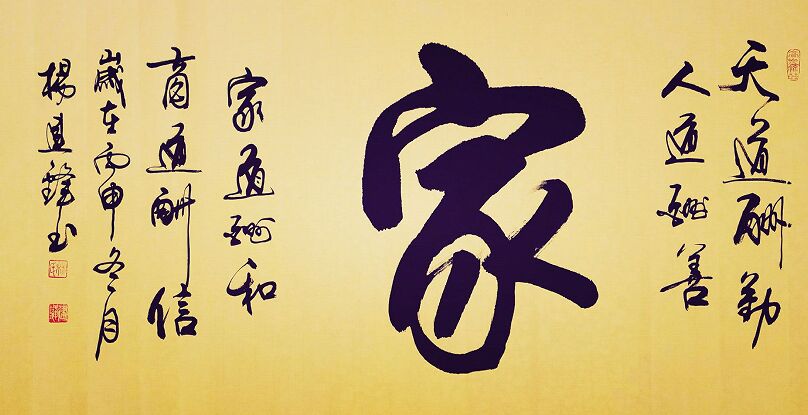 天道酬勤
人道酬善
家
家道酬和
商道酬信
歲在丙申冬月
楊